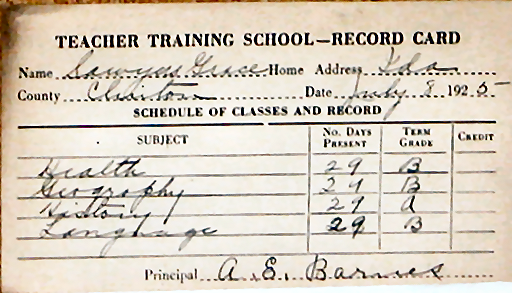 TEACHER TRAINING SCHOOL—RECORD CARD
Name Sawyer Grace Home Address Ida
County Clairton Date July 8 1925
SCHEDULE OF CLASSES AND RECORD
SUBJECT No. Days Present Term Grade Credit
Health 29 B
Geography 29 B
History 29 a
Language 29 B
Principal A. E. Barnes